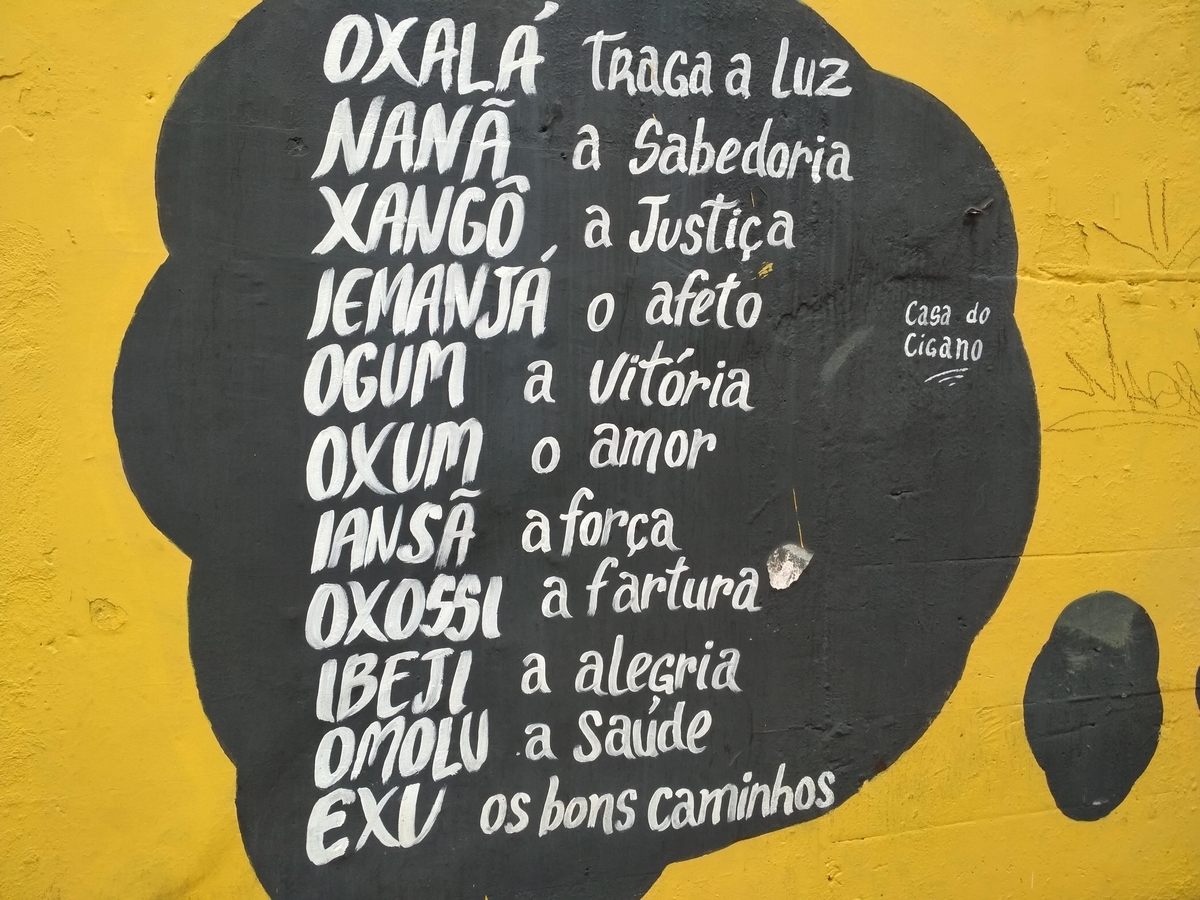 OXALÁ Traga a Luz
NANÃ a Sabedoria
XANGÔ a Justiça
IEMANJÁ o afeto
OGUM a Vitória
OXUM o amor
IANSÃ a força
OXOSSI a fartura
IBEJI a alegria
OMOLU a Saúde
EXU os bons caminhos
Casa do
Cigano